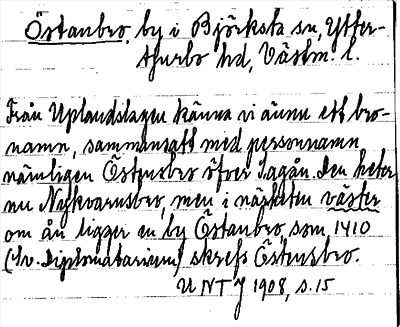 Östanbro, by i Björksta sn, Ytter-
tjurbo hd, Västm. l.
Från Uplandslagen känna vi ännu ett bro-
namn, sammansatt med personnamn
nämligen Östensbro öfver Sagån. Den heter
nu Nykvarnsbro, men i närheten väster
om ån ligger en by Östanbro, som 1410
(Sv. Diplomatarium) skrefs Östensbro.
UNT J 1908, s. 15